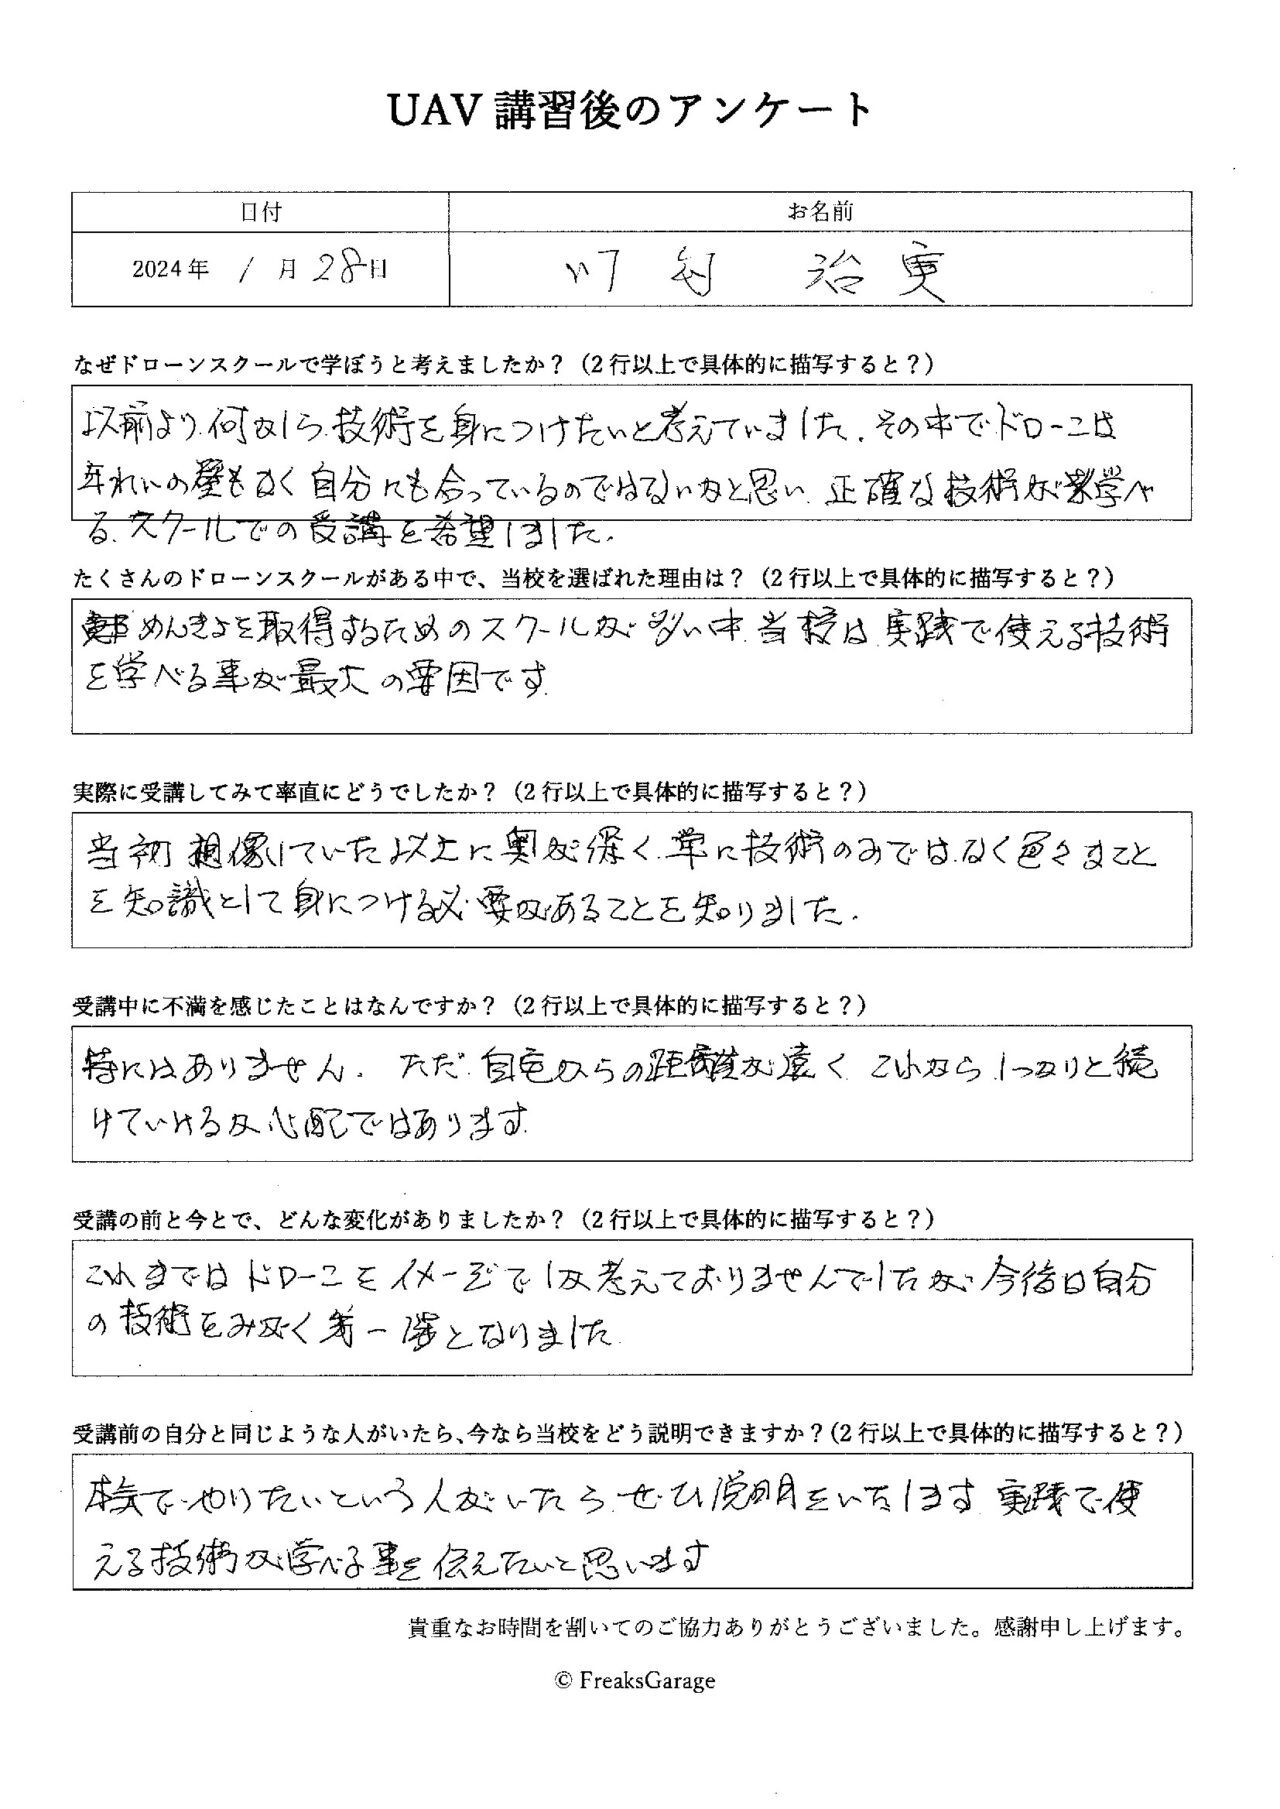 UAV 講習後のアンケート
日付
お名前
2024年 1月28日
治
なぜドローンスクールで学ぼうと考えましたか？（2行以上で具体的に描写すると？）
以前より、何かしら技術を身につけたいと考えていました。その中でドローンは
年れいの壁もなく自分にも合っているのではないかと思い、正確な技術が学べ
る、スクールでの受講を希望しました。
たくさんのドローンスクールがある中で、当校を選ばれた理由は？（2行以上で具体的に描写すると？）
めんきょを取得するためのスクールが多い中、当校は、実践で使える技術
を学べる事が最大の要因です。
実際に受講してみて率直にどうでしたか？（2行以上で具体的に描写すると？）
当初想像していた以上に奥が深く、単に技術のみではなく色々なこと
を知識として身につける必要があることを知りました。
受講中に不満を感じたことはなんですか？（2行以上で具体的に描写すると？）
特にはありません。ただ、自宅からの距離が遠く、これからしっかりと続
けていけるか心配ではあります。
受講の前と今とで、どんな変化がありましたか？（2行以上で具体的に描写すると？）
これまではドローンをイメージでしか考えておりませんでしたが、今後は自分
の技術をみがく第一歩となりました
受講前の自分と同じような人がいたら、今なら当校をどう説明できますか？（2行以上で具体的に描写すると？）
本気でやりたいという人がいたら、ぜひ説明をいたします 実践で使
える技術が学べる事を伝えたいと思います
貴重なお時間を割いてのご協力ありがとうございました。感謝申し上げます。
© FreaksGarage